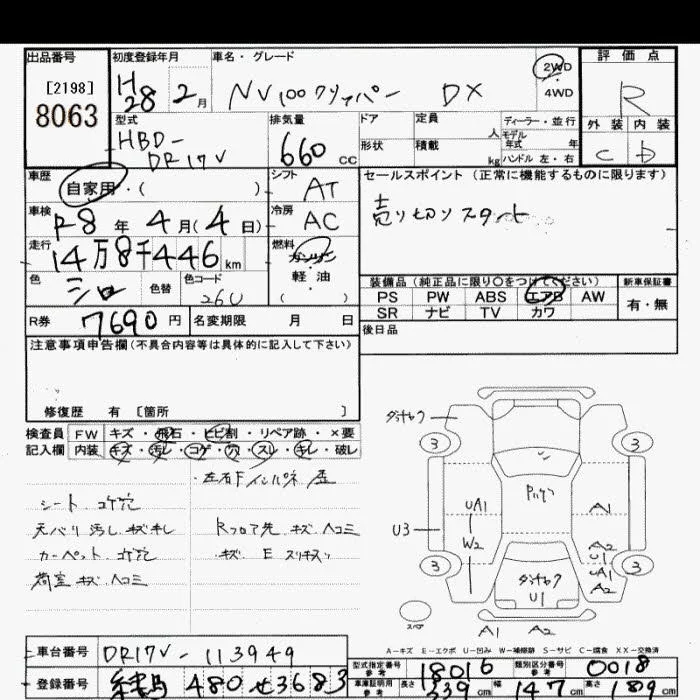 出品番号 初度登録年月 車名・グレード 評価点
[2198]
8063
H28 2月 NV100クリッパー DX 2WD
4WD
R
型式 排気量 ドア 定員 人 ディーラー・並行
モデル年式 年
外装 内装
HBD-DR17V 660 CC 形状 積載 kg ハンドル 左・右
C D
車歴 自家用・( ) シフト AT セールスポイント (正常に機能するものに限ります)
車検 R8年 4月(4日) 冷房 AC 売り切りスタート
走行 14万8千446km 燃料 ガソリン・軽油 ( )
色 シロ 色替 色コード 26U
装備品 (純正品に限り○をつけてください) 新車保証書
PS PW ABS エアB AW 有・無
SR ナビ TV カワ
R券 7690円 名変期限 月 日 後日品
注意事項申告欄(不具合内容等は具体的に記入して下さい)
修復歴 有 [箇所 ]
検査員記入欄 FW キズ・飛石・ヒビ割・リペア跡・×要
内装 キズ・汚レ・コゲ・穴・スレ・キレ・破レ
・左右Fインパネ 歪
シート コゲ穴
天バリ 汚レ キズ キレ
カーペット コゲ穴
荷室 キズ ヘコミ
Rフロア先 キズ ヘコミ
・キズ E スリキズ
ダッチャク
3 3
UA1 A1
U3
W2 A2
U1
UA1
A2
3 3
ダッチャク
U1
スペア
A1 A2
A-キズ E-エクボ U-凹み W-補修跡 S-サビ C-腐食 XX-交換済
車台番号 DR17V-113949
型式指定番号 参考 18016 類別区分番号 参考 0018
登録番号 480 せ3683
車庫証明用 参考 長さ 339cm 幅 147cm 高さ 189cm